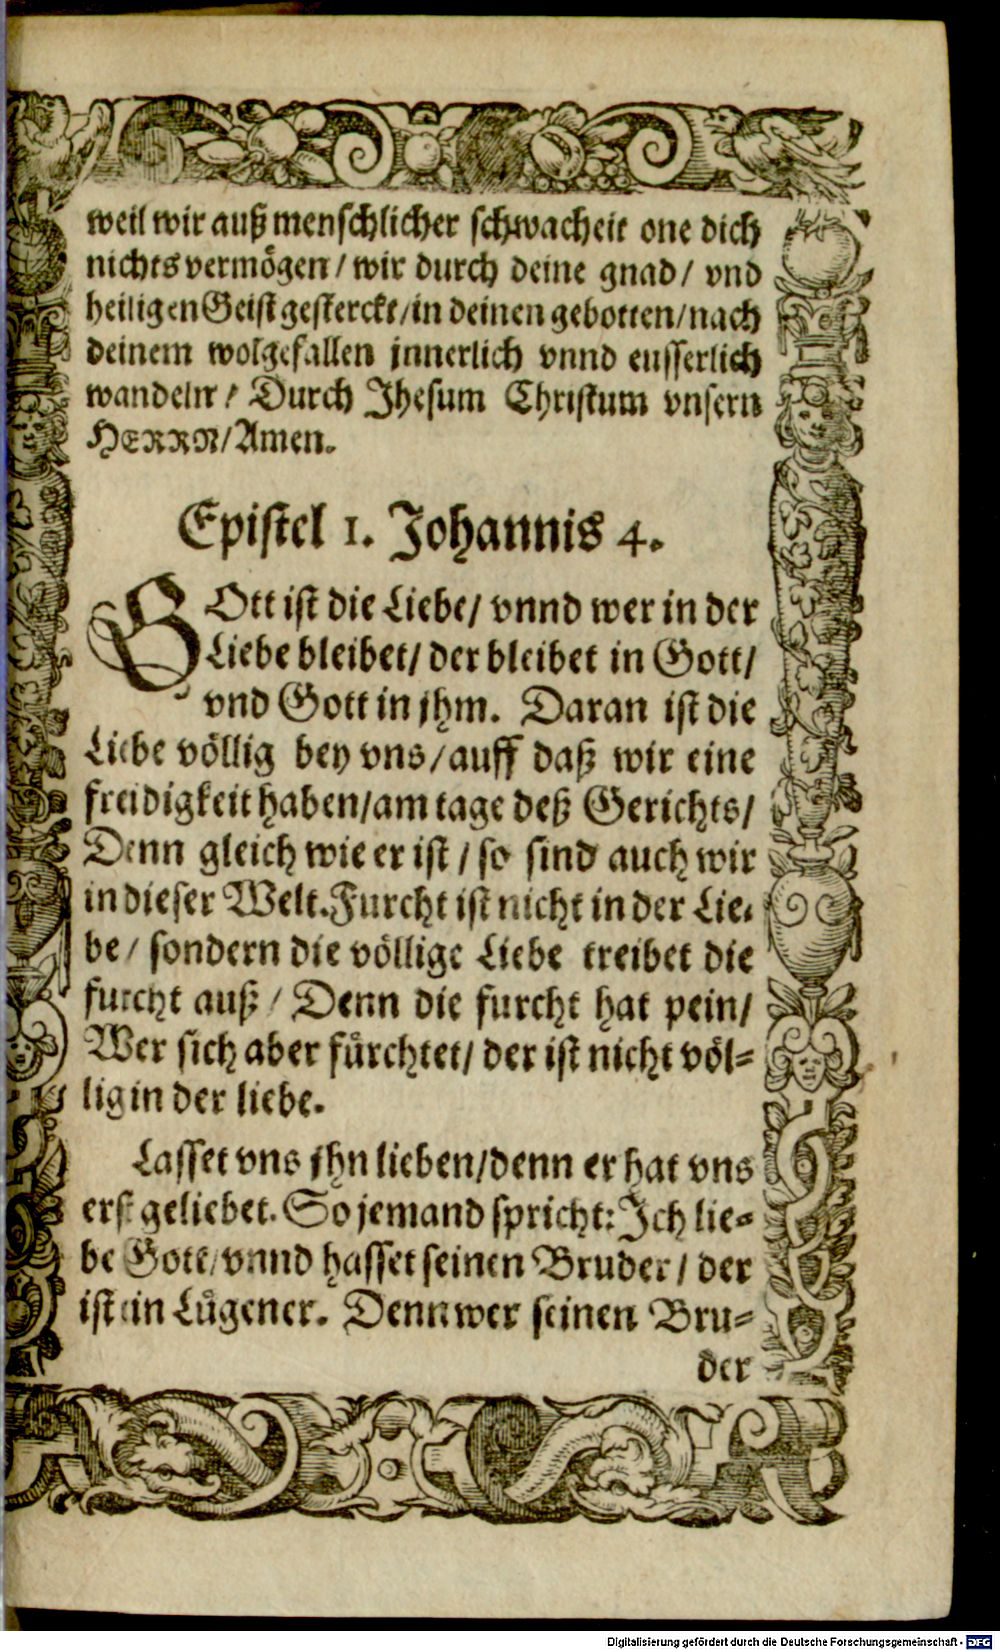 weil wir auß menschlicher schwacheit one dich
nichts vermögen / wir durch deine gnad / vnd
heiligen Geist gesterckt / in deinen gebotten / nach
deinem wolgefallen jnnerlich vnnd eusserlich
wandeln / Durch Jhesum Christum vnsern
HERRN / Amen.
Epistel 1. Johannis 4.
GOtt ist die Liebe / vnnd wer in der
Liebe bleibet / der bleibet in Gott /
vnd Gott in jhm. Daran ist die
Liebe völlig bey vns / auff daß wir eine
freidigkeit haben / am tage deß Gerichts /
Denn gleich wie er ist / so sind auch wir
in dieser Welt. Furcht ist nicht in der Lie-
be / sondern die völlige Liebe treibet die
furcht auß / Denn die furcht hat pein /
Wer sich aber fürchtet / der ist nicht völ-
lig in der liebe.
Lasset vns jhn lieben / denn er hat vns
erst geliebet. So jemand spricht: Jch lie-
be Gott / vnnd hasset seinen Bruder / der
ist ein Lügener. Denn wer seinen Bru-
der
Digitalisierung gefördert durch die Deutsche Forschungsgemeinschaft - DFG